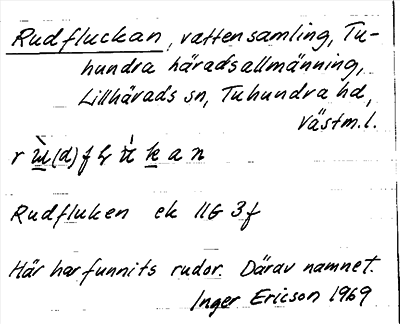 Rudfluckan, vattensamling, Tu-
hundra häradsallmänning,
Lillhärads sn, Tuhundra hd,
Västm.l.
Rudfluken ek 11G 3f
Här har funnits rudor. Därav namnet.
Inger Ericson 1969